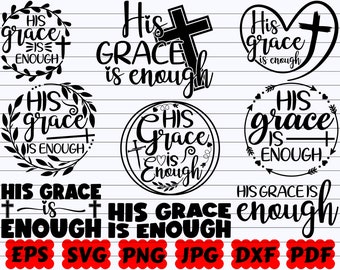 His
grace
is
ENOUGH
His
GRACE
is enough
His
grace
is enough
HIS
grace
IS ENOUGH
HIS
Grace
is
Enough
HIS
grace
IS
ENOUGH
HIS GRACE
is
ENOUGH
HIS GRACE
IS ENOUGH
HIS GRACE IS
enough
EPS SVG PNG JPG DXF PDF